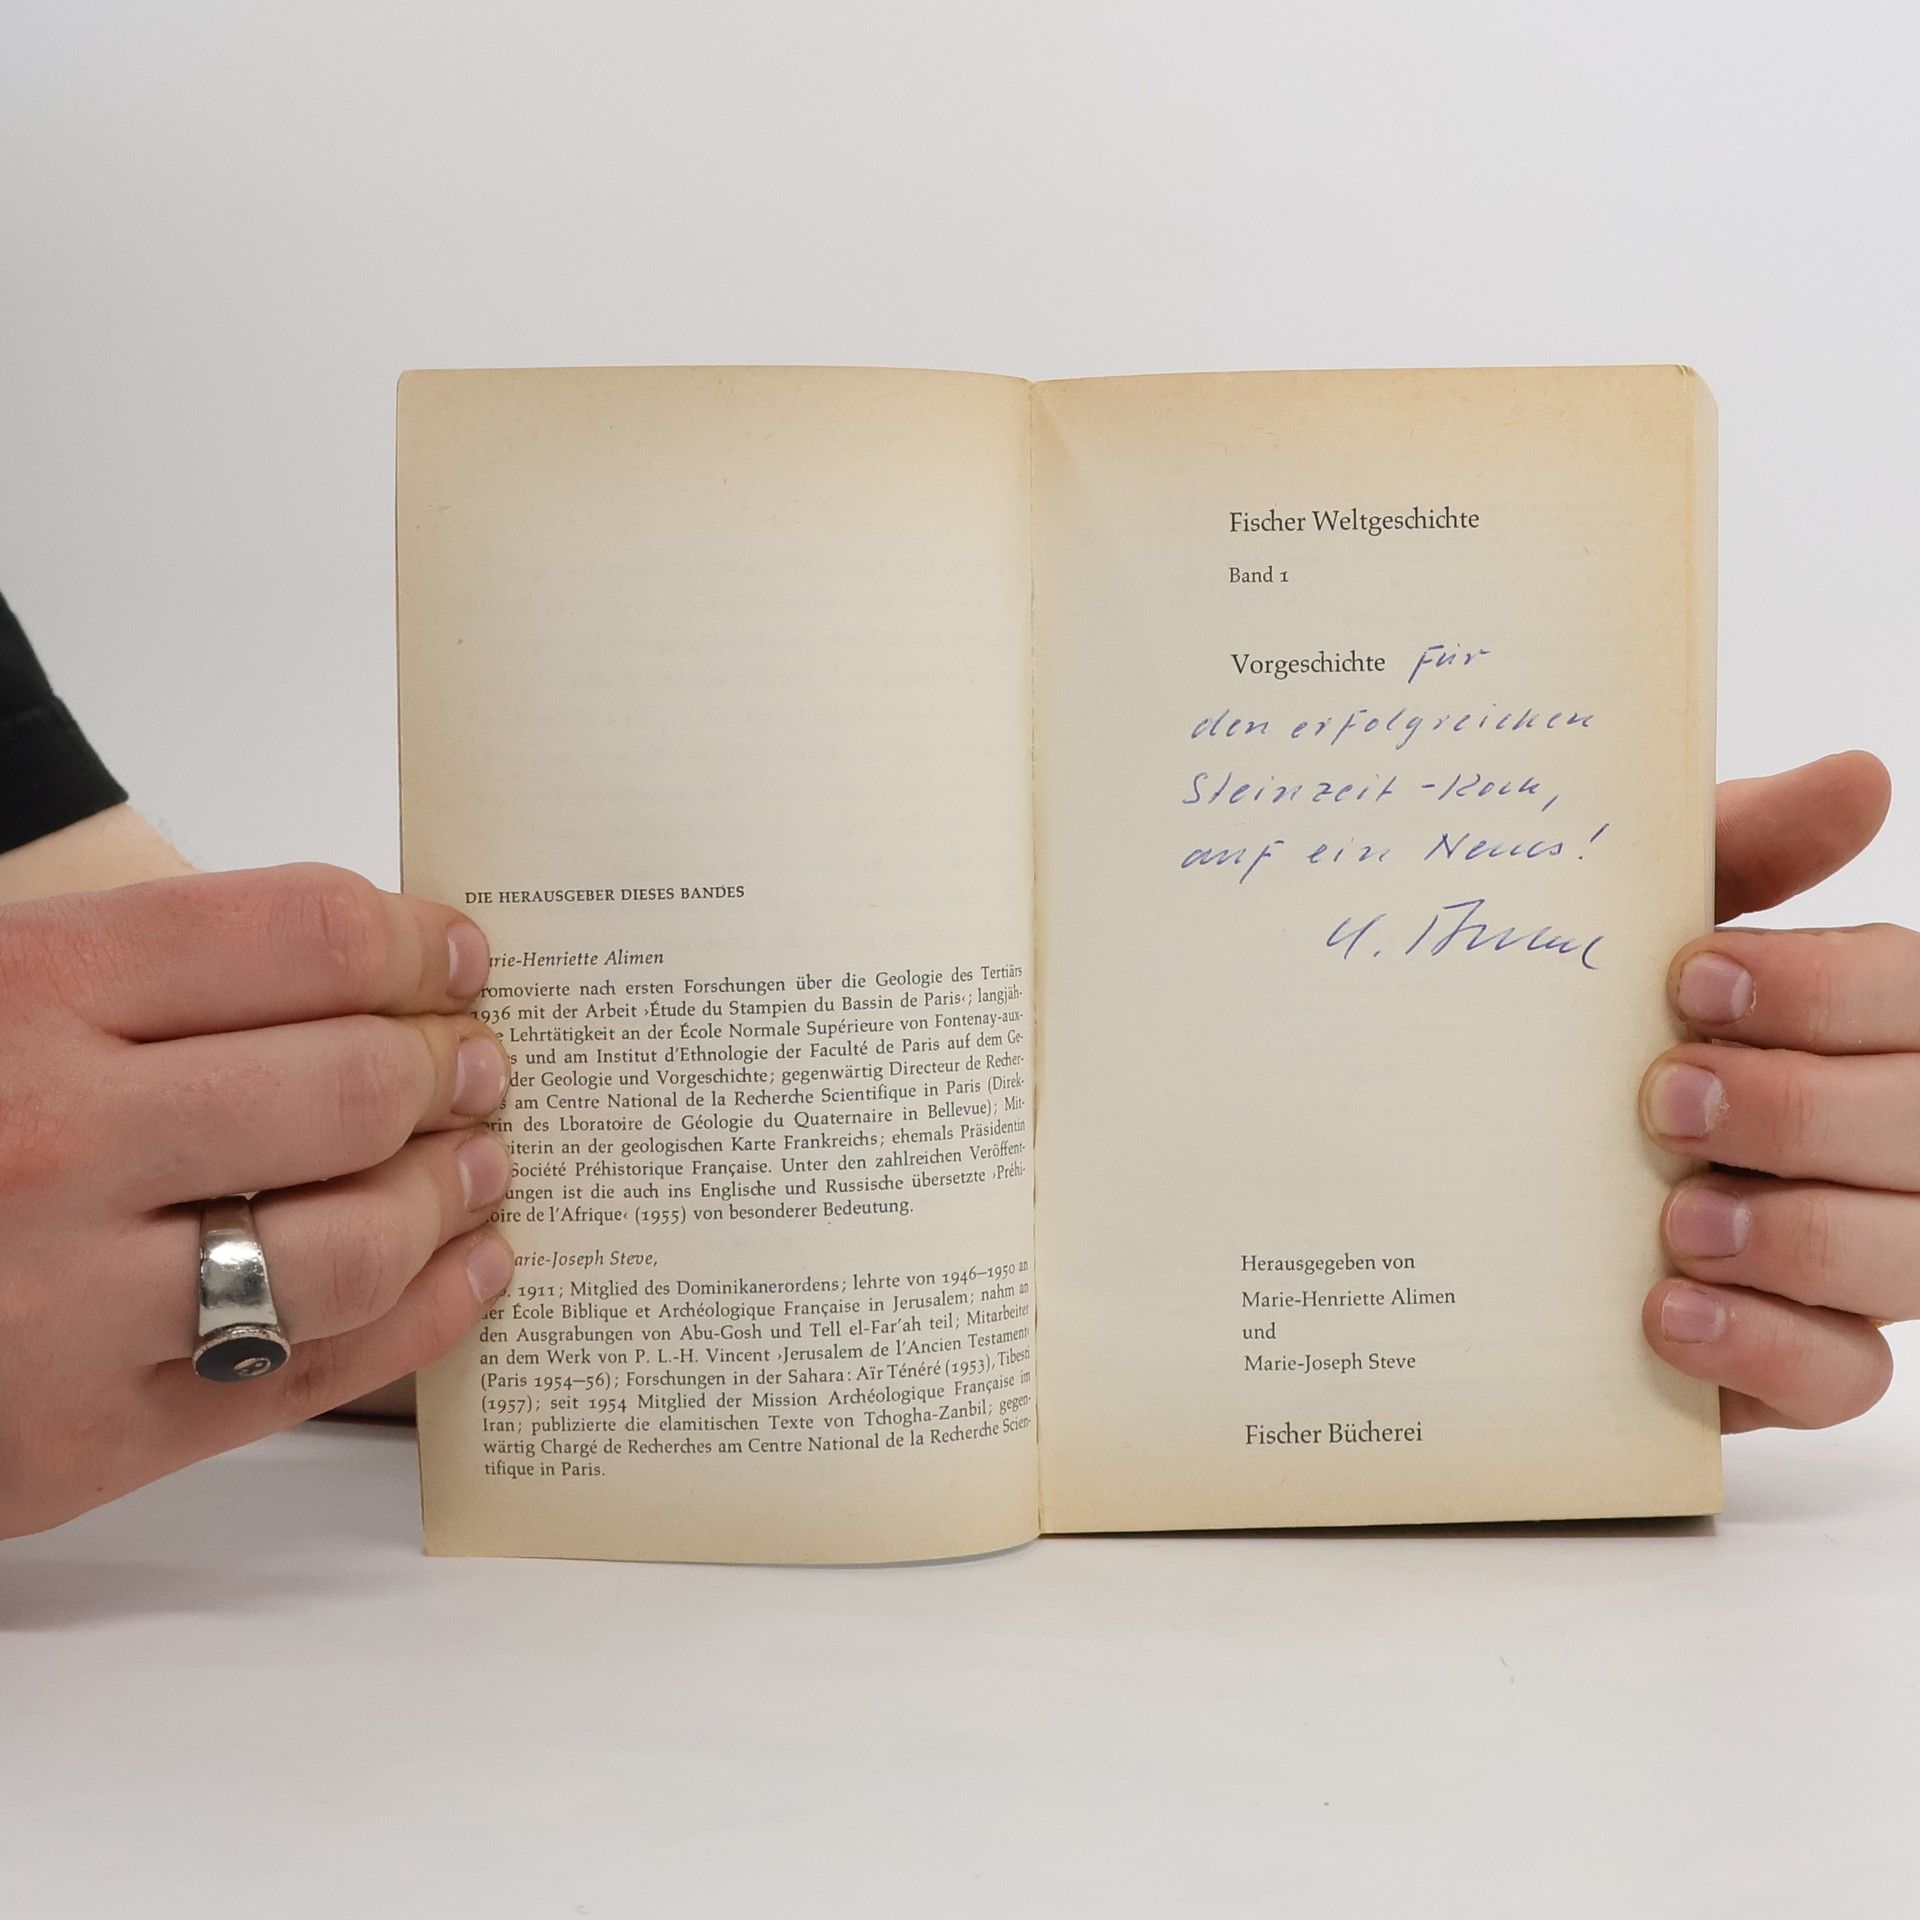 DIE HERAUSGEBER DIESES BANDES
rie-Henriette Alimen
romovierte nach ersten Forschungen über die Geologie des Tertiärs
1936 mit der Arbeit ›Étude du Stampien du Bassin de Paris‹; langjäh-
e Lehrtätigkeit an der École Normale Supérieure von Fontenay-aux-
s und am Institut d'Ethnologie der Faculté de Paris auf dem Ge-
der Geologie und Vorgeschichte; gegenwärtig Directeur de Recher-
s am Centre National de la Recherche Scientifique in Paris (Direk-
rin des Lboratoire de Géologie du Quaternaire in Bellevue); Mit-
iterin an der geologischen Karte Frankreichs; ehemals Präsidentin
Société Préhistorique Française. Unter den zahlreichen Veröffent-
ungen ist die auch ins Englische und Russische übersetzte ›Préhi-
oire de l'Afrique‹ (1955) von besonderer Bedeutung.
arie-Joseph Steve,
. 1911; Mitglied des Dominikanerordens; lehrte von 1946–1950 an
der École Biblique et Archéologique Française in Jerusalem; nahm an
den Ausgrabungen von Abu-Gosh und Tell el-Far'ah teil; Mitarbeiter
an dem Werk von P. L.-H. Vincent ›Jerusalem de l'Ancien Testament‹
(Paris 1954–56); Forschungen in der Sahara: Aïr Ténéré (1953), Tibesti
(1957); seit 1954 Mitglied der Mission Archéologique Française im
Iran; publizierte die elamitischen Texte von Tchogha-Zanbil; gegen-
wärtig Chargé de Recherches am Centre National de la Recherche Scien-
tifique in Paris.
Fischer Weltgeschichte
Band 1
Vorgeschichte Für
den erfolgreichen
Steinzeit-Koch,
auf ein Neues!
Herausgegeben von
Marie-Henriette Alimen
und
Marie-Joseph Steve
Fischer Bücherei